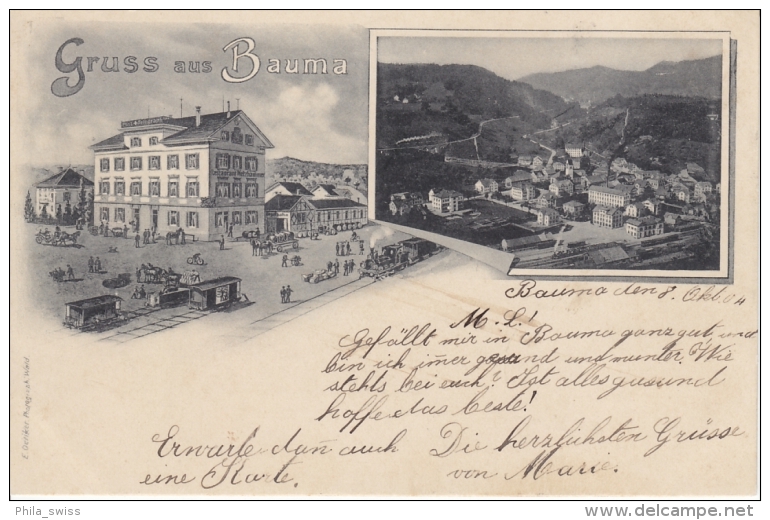 Gruss aus Bauma
Bauma den 8. Okt. 04
M. L.!
Gefällt mir in Bauma ganz gut, und
bin ich im̄er gesund und munter. Wie
stehts bei euch? Ist alles gesund
hoffe das beste!
Erwarte dan̄ auch
eine Karte.
Die herzlichsten Grüsse
von Marie.
Phila_swiss
delcampe.net